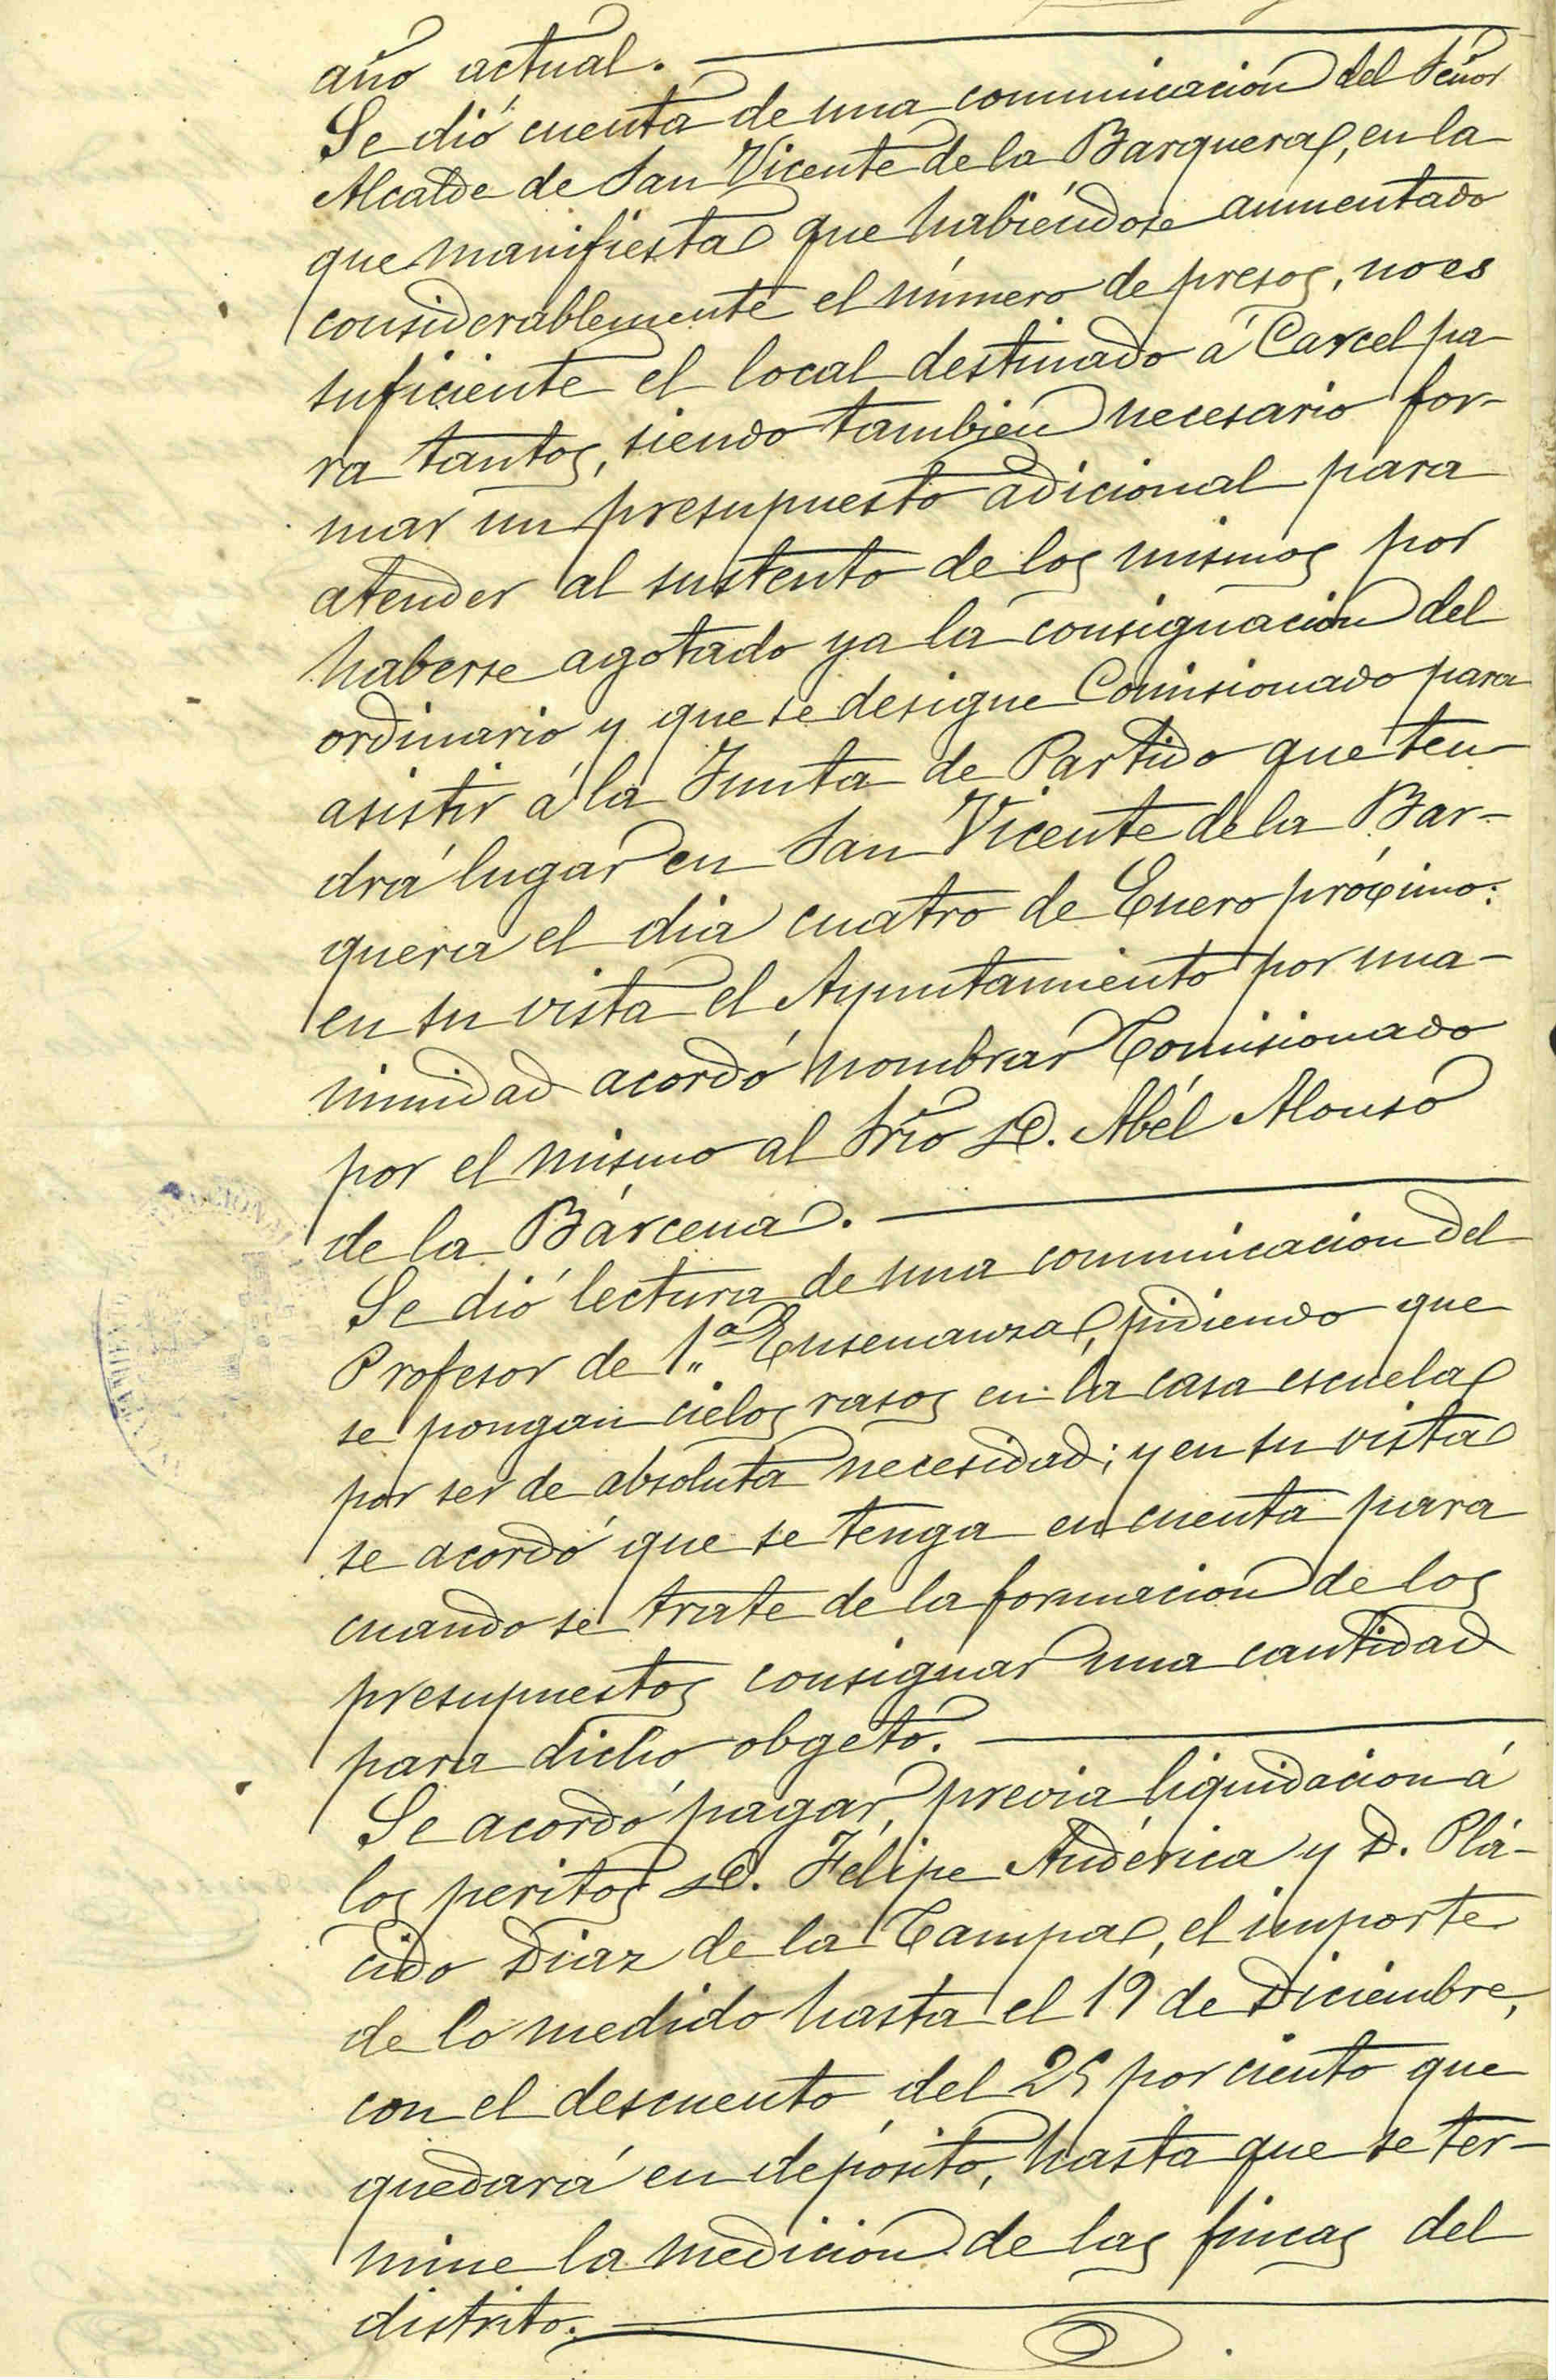 año actual.
Se dió cuenta de una comunicacion del Señor
Alcalde de San Vicente de la Barquera, en la
que manifiesta que habiéndose aumentado
considerablemente el número de presos, no es
suficiente el local destinado á Carcel pa-
ra tantos, siendo tambien necesario for-
mar un presupuesto adicional para
atender al sustento de los mismos por
haberse agotado ya la consignacion del
ordinario y que se designe Comisionado para
asistir á la Junta de Partido que ten-
drá lugar en San Vicente de la Bar-
quera el dia cuatro de Enero próximo:
en su vista el Ayuntamiento por una-
nimidad acordó nombrar Comisionado
por el mismo al Srio D. Abél Alonso
de la Bárcena.
Se dió lectura de una comunicacion del
Profesor de 1.ª Ensenanza, pidiendo que
se pongan cielos rasos en la casa escuela
por ser de absoluta necesidad; y en su vista
se acordó que se tenga en cuenta para
cuando se trate de la formacion de los
presupuestos consignar una cantidad
para dicho obgeto.
Se acordó pagar, previa liquidacion á
los peritos D. Félipe Andérica y D. Plá-
cido Diaz de la Campa, el importe
de lo medido hasta el 19 de Diciembre,
con el descuento del 25 por ciento que
quedará en depósito, hasta que se ter-
mine la medicion de las fincas del
distrito.